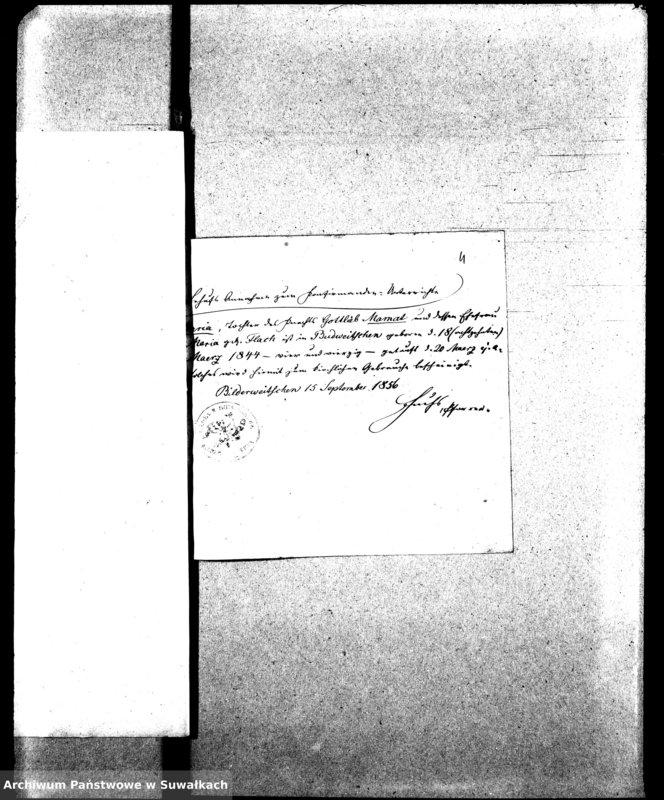 4
Behufs Annahme zum Confirmanden-Unterrichte
Maria, Tochter des Knechts Gottlieb Mamat und dessen Ehefrau
Maria geb. Flach ist in Budweitschen geboren d. 18 (achtzehnten)
Maerz 1844 — vier und vierzig — getauft d. 20 Maerz ej. a.
Solches wird hiemit zum kirchlichen Gebrauche bescheinigt.
Bilderweitschen 15 September 1856
Pfarrer.
Archiwum Państwowe w Suwałkach